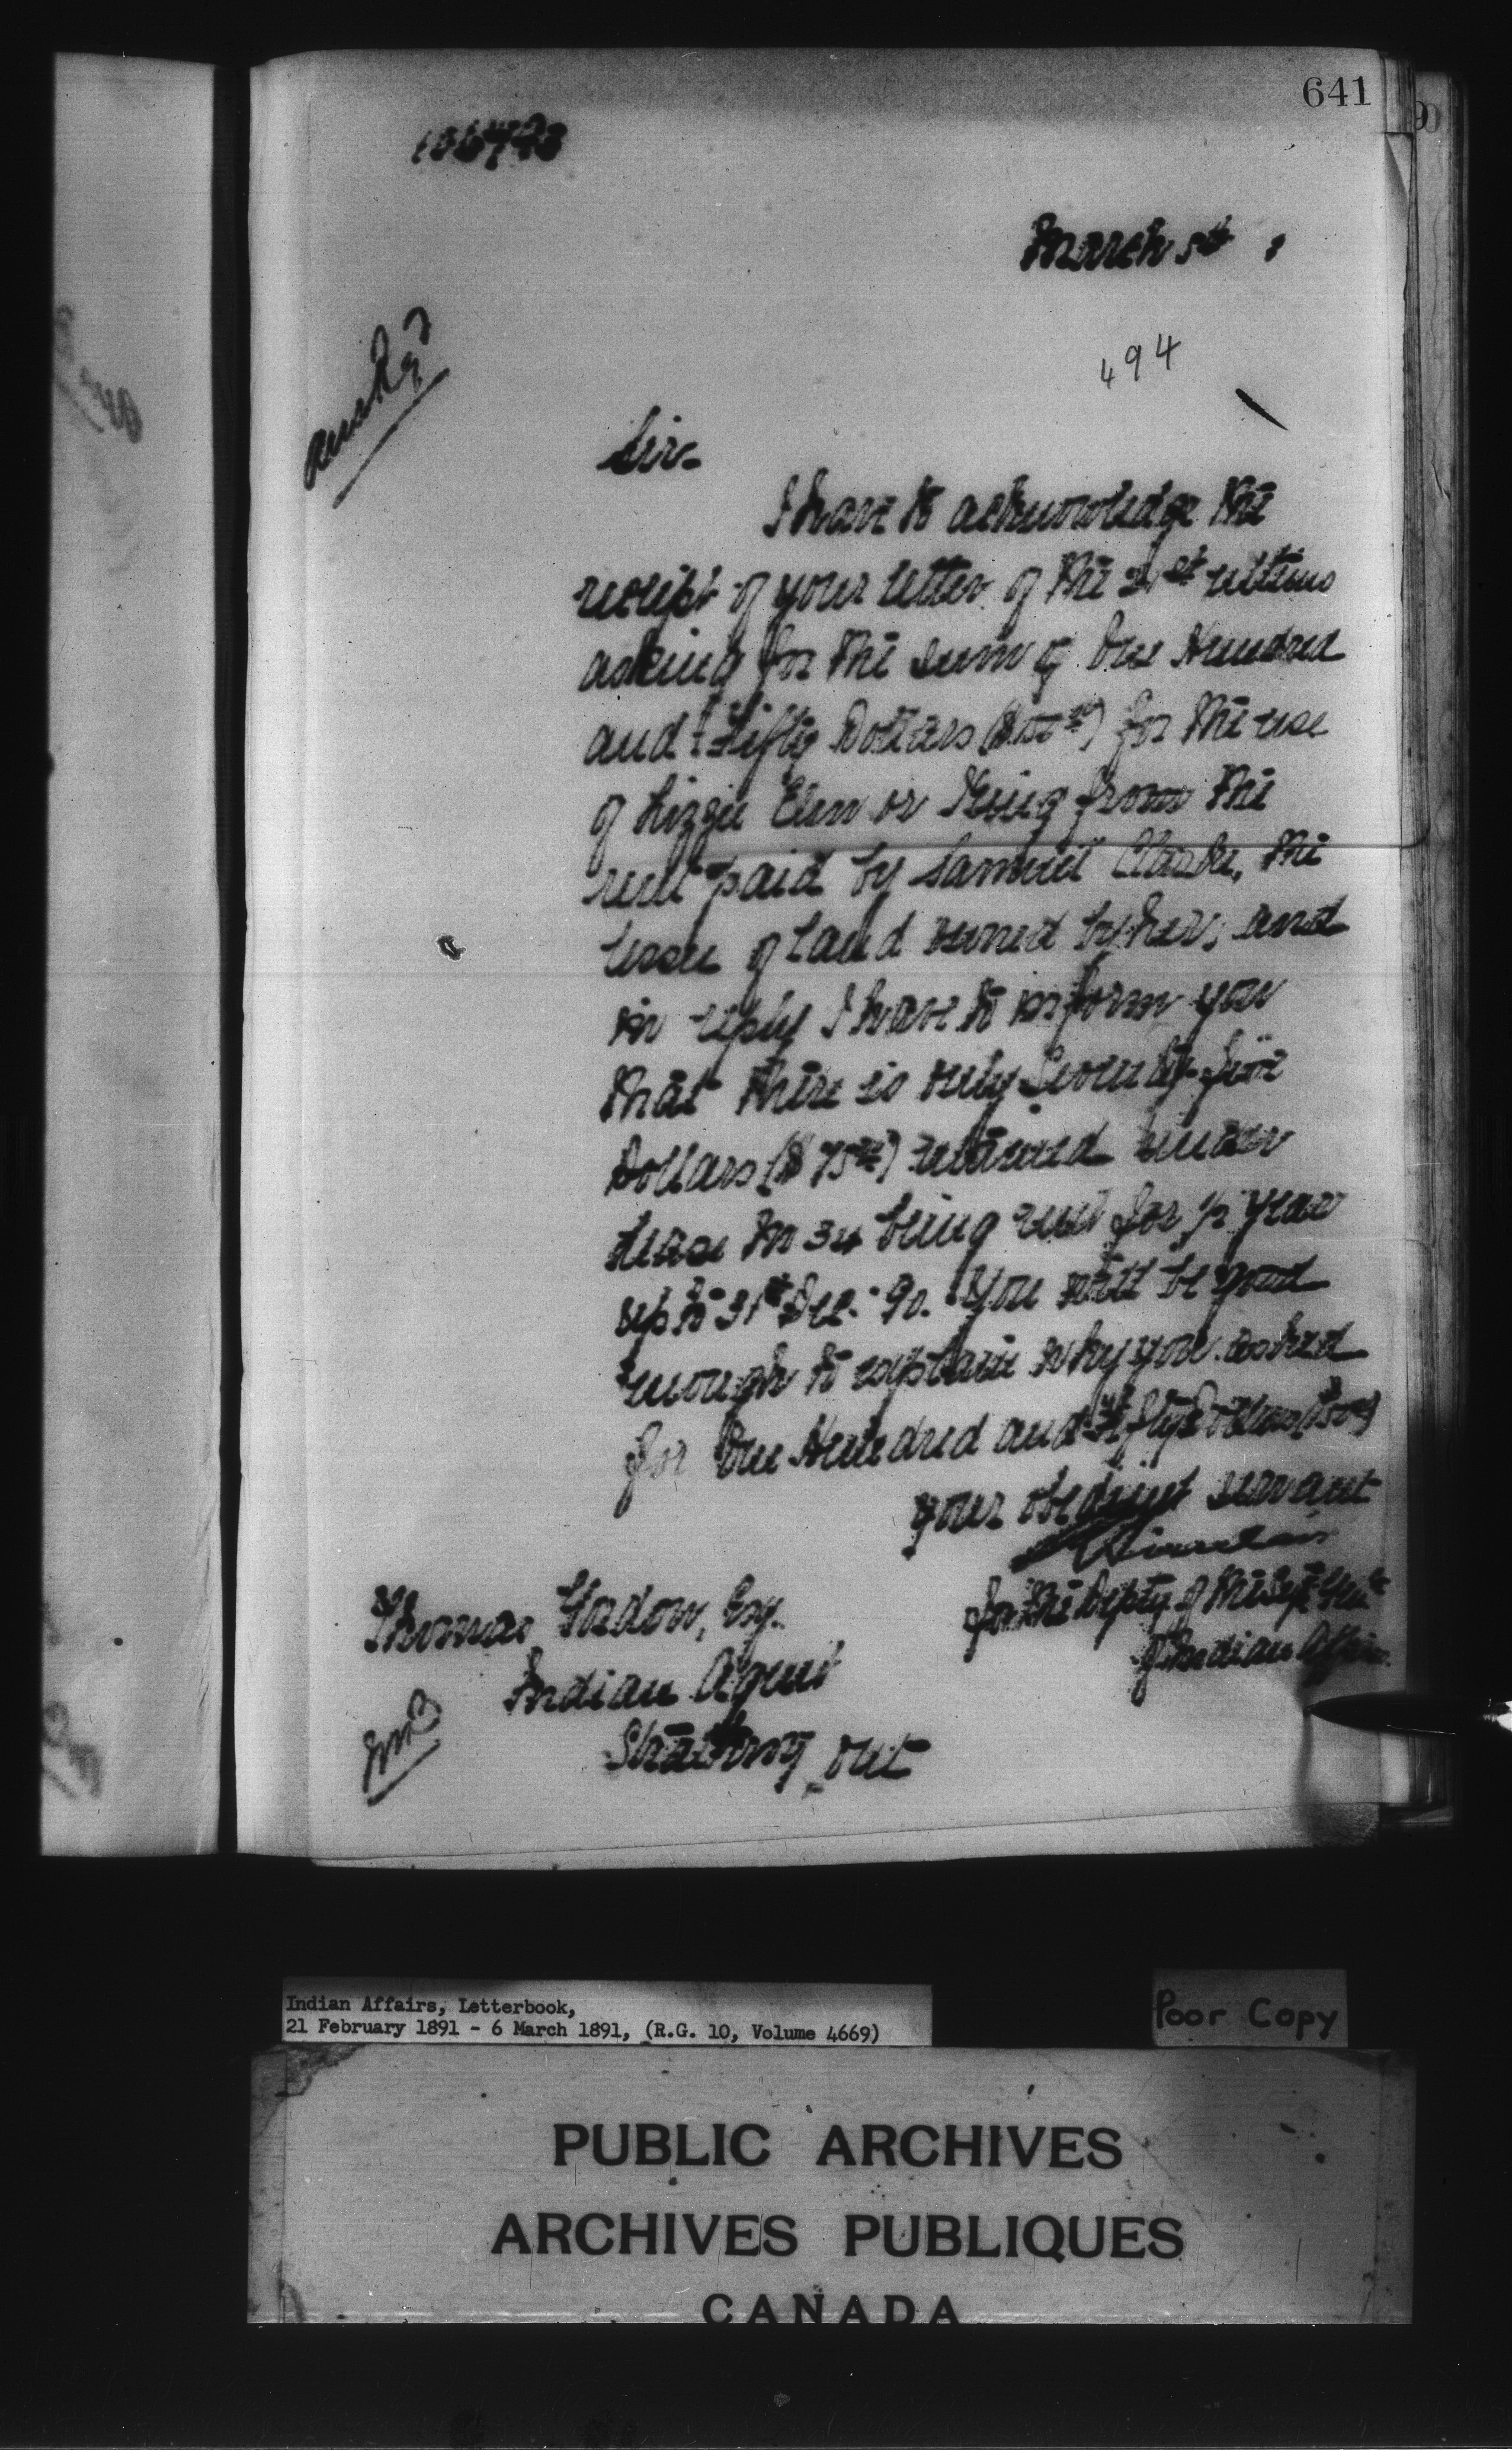 641
March 5th 1
494
Sir.
I have to acknowledge the
receipt of your letter of the 21st ultimo
asking for the sum of One Hundred
and Fifty Dollars for the use
of Lizzie Elm or King from the
rent paid by Samuel Clarke, the
lessee of land owned by her, and
in reply I have to inform you
that there is only Seventy-five
Dollars ($75.00) retained under
lease No 34 being rent for ½ year
up to 31st Dec. 90. You will be good
enough to explain why you asked
for One Hundred and Fifty Dollars
Your obedient servant
for the Depty of the Supt Genl
of Indian Affairs
Thomas Gordon, Esq.
Indian Agent
Strathroy Ont
Indian Affairs, Letterbook,
21 February 1891 - 6 March 1891, (R.G. 10, Volume 4669)
Poor Copy
PUBLIC ARCHIVES
ARCHIVES PUBLIQUES
CANADA